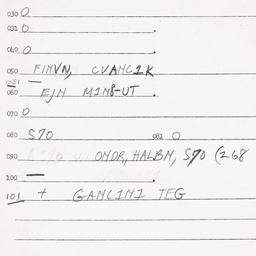 030 0
031 0
040 0
050 FINVN, CVANC1K
051 —
060 EJN M1N8-UT
070 0
080 S70 082 0
090 ONDR, HALBN, S70 (268
100 —
101 + GANCINI TEG